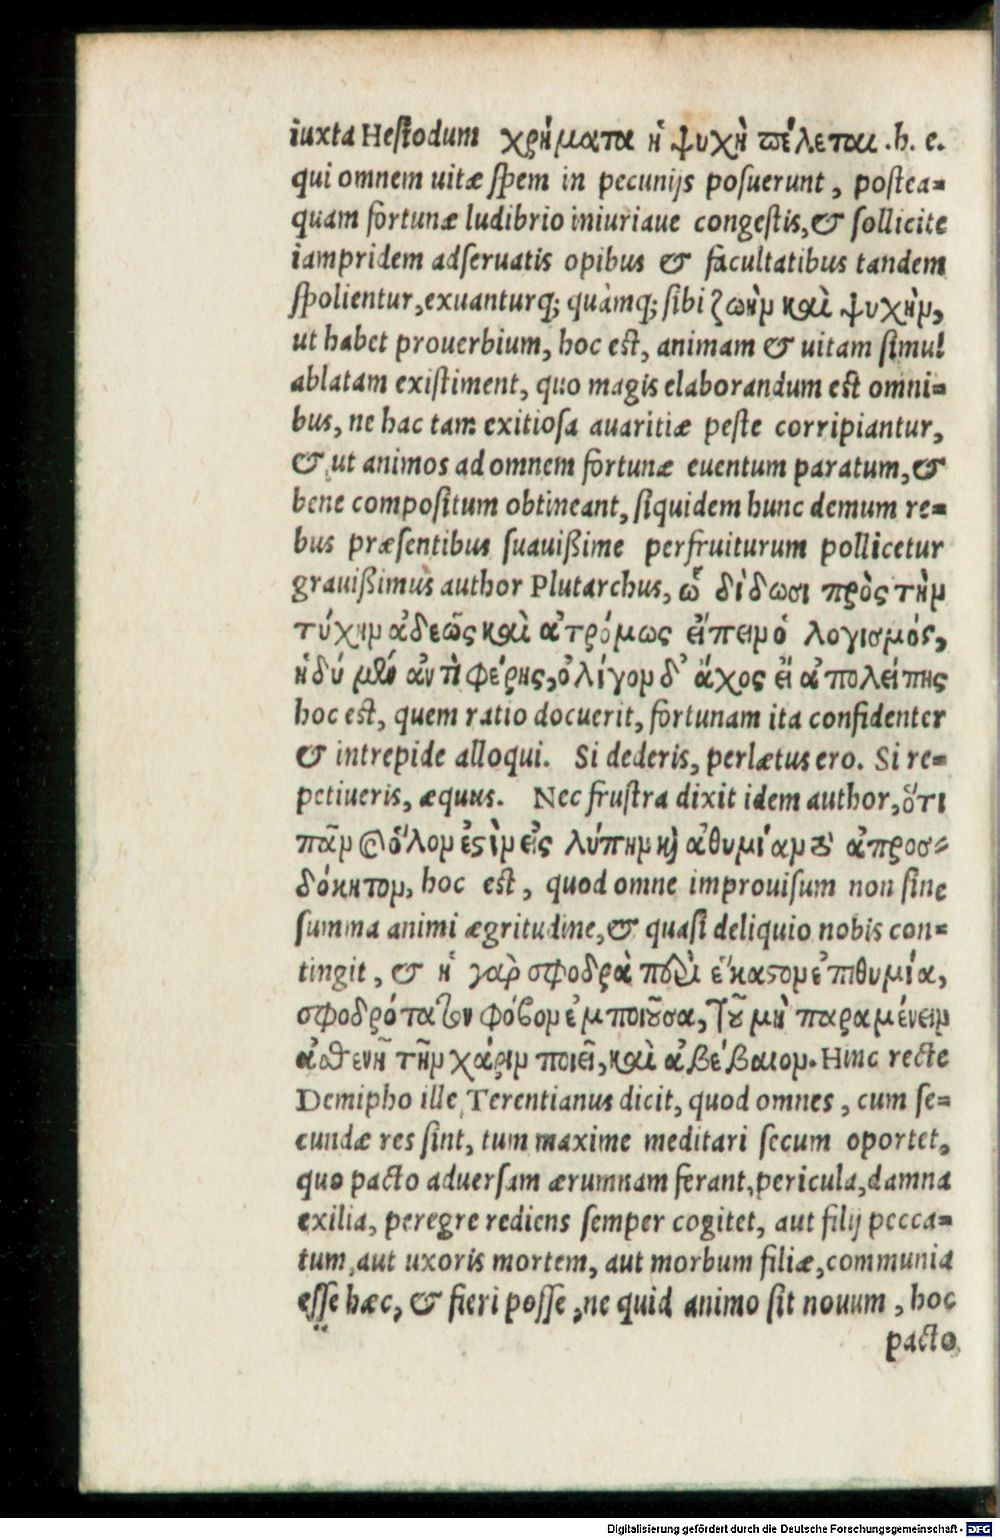 iuxta Hesiodum χρήματα ἡ ψυχὴ πέλεται .h. e.
qui omnem uitæ spem in pecunijs posuerunt, postea=
quam fortunæ ludibrio iniuriaue congestis, & sollicite
iampridem adseruatis opibus & facultatibus tandem
spolientur, exuanturq; quàmq; sibi ζωὴν καὶ ψυχὴν,
ut habet prouerbium, hoc est, animam & uitam simul
ablatam existiment, quo magis elaborandum est omni=
bus, ne hac tam exitiosa auaritiæ peste corripiantur,
& ut animos ad omnem fortunæ euentum paratum, &
bene compositum obtineant, siquidem hunc demum re=
bus præsentibus suauißime perfruiturum pollicetur
grauißimus author Plutarchus, ᾧ δίδωσι πρὸς τὴν
τύχην ἀδεῶς καὶ ἀτρόμως εἴπειν ὁ λογισμός,
ἡδύ μὲν ἄν τὶ φέρης, ὀλίγον δ' ἄχος εἴ ἀπολείπης
hoc est, quem ratio docuerit, fortunam ita confidenter
& intrepide alloqui. Si dederis, perlætus ero. Si re=
petiueris, æquus. Nec frustra dixit idem author, ὅτι
πᾶν ὅλον ἐςὶν εἰς λύπην κὶ ἀθυμίαν ȣ̓ ἀπροσ=
δόκητον, hoc est, quod omne improuisum non sine
summa animi ægritudine, & quasi deliquio nobis con=
tingit, & ἡ γὰρ σφοδρὰ περὶ ἕκαςον ἐπιθυμία,
σφοδρότατον φόβον ἐμποιοῦσα, τȣ͂ μὴ παραμένειν
ἀσθενῆ τὴν χάριν ποιεῖ, καὶ ἀβέβαιον. Hinc recte
Demipho ille Terentianus dicit, quod omnes, cum se=
cundæ res sint, tum maxime meditari secum oportet,
quo pacto aduersam ærumnam ferant, pericula, damna
exilia, peregre rediens semper cogitet, aut filij pecca=
tum, aut uxoris mortem, aut morbum filiæ, communia
esse hæc, & fieri posse, ne quid animo sit nouum, hoc
pacto
Digitalisierung gefördert durch die Deutsche Forschungsgemeinschaft - DFG